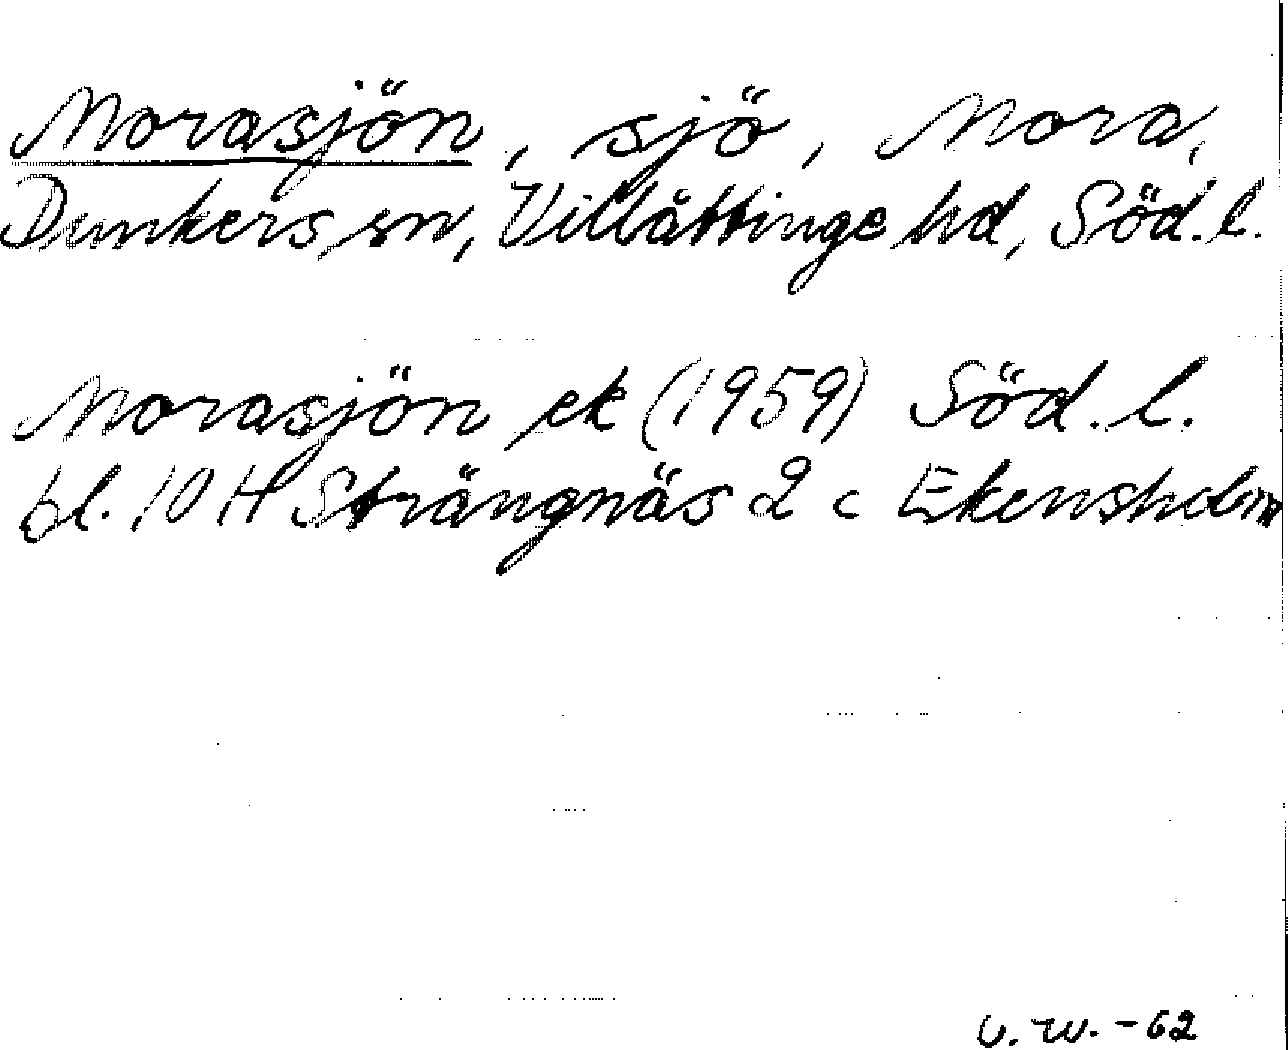 Morasjön, sjö, Mora,
Dunkers sn, Villåttinge hd, Söd. l.
Morasjön ek (1959) Söd. l.
bl. 10 H Strängnäs 2 c Ekensholm
V. W. -62